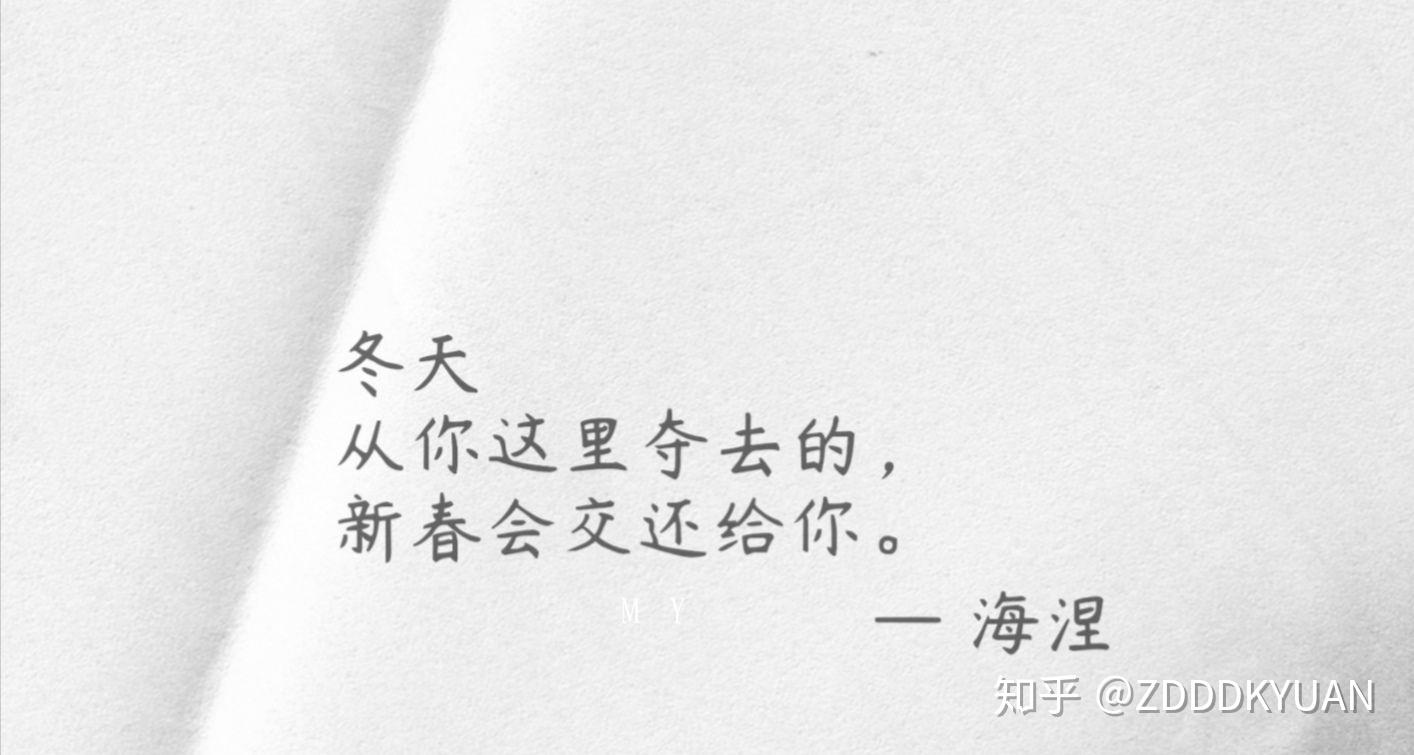 冬天
从你这里夺去的，
新春会交还给你。
M Y
— 海涅
知乎 @ZDDDKYUAN